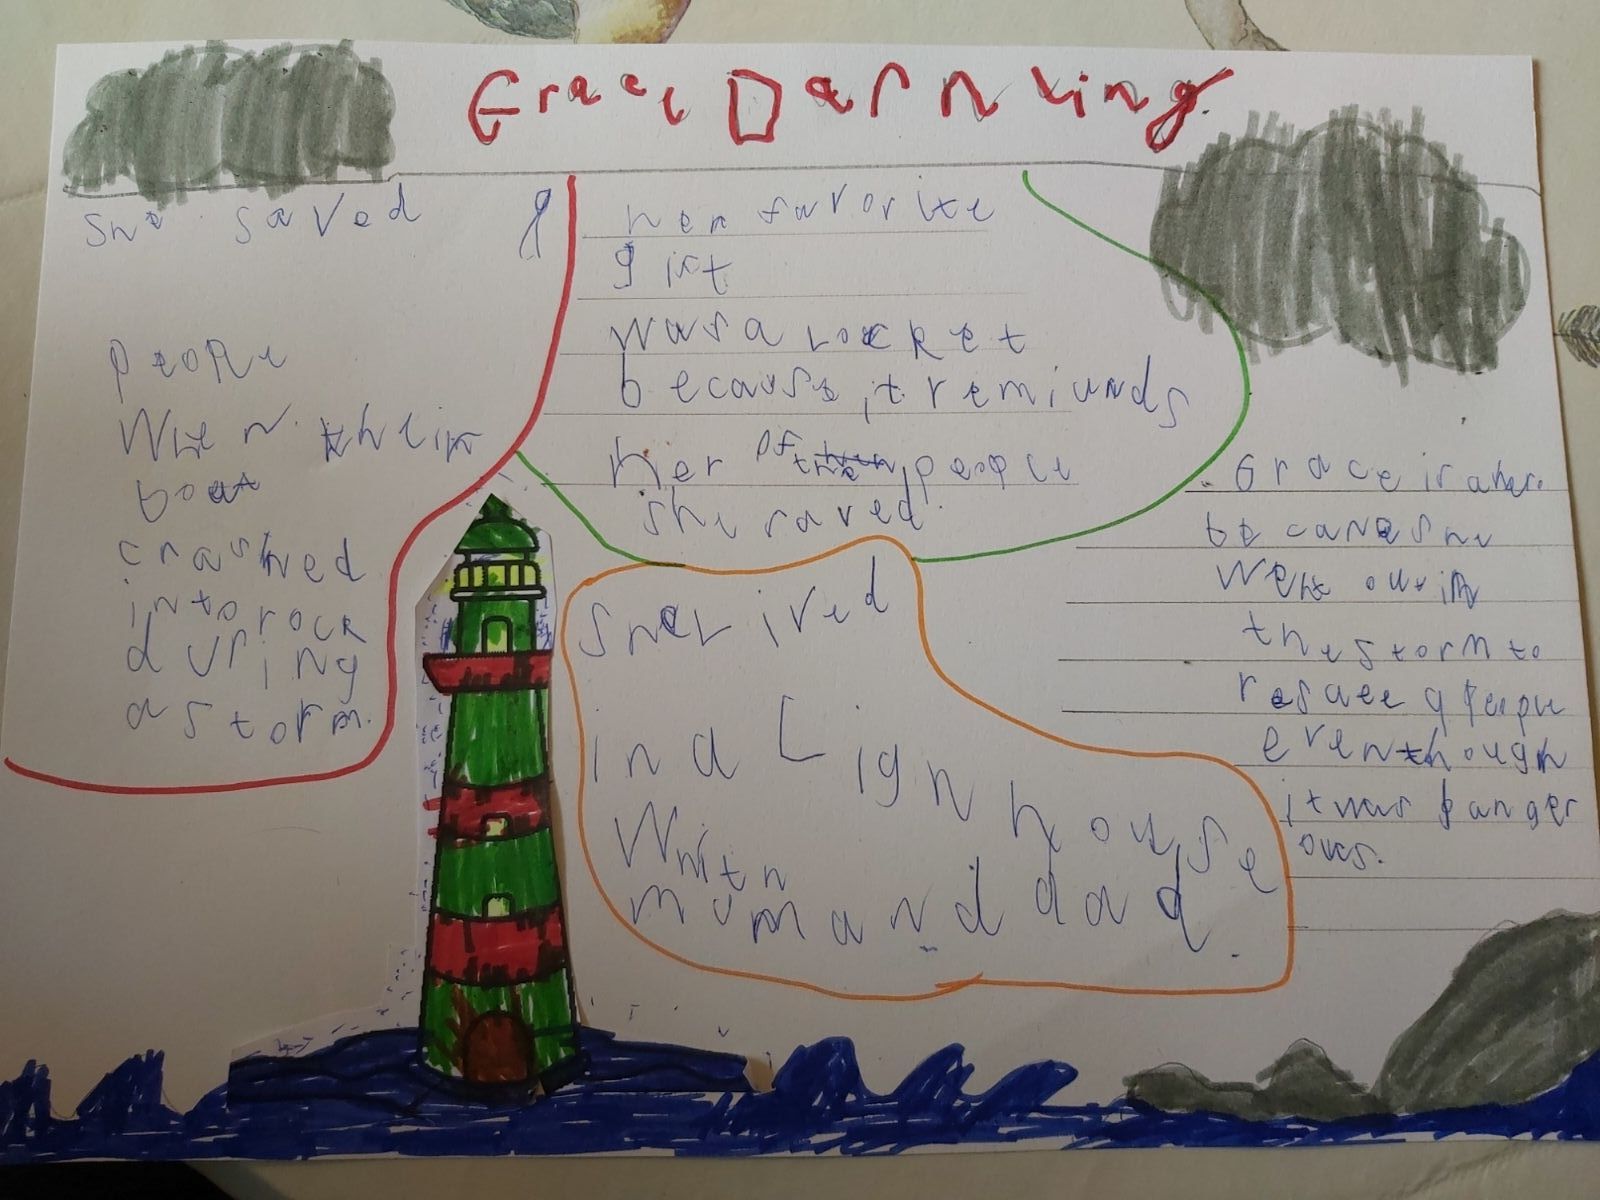 Grace Darnling
She saved 9
people
When their
boat
crashed
into rock
during
a storm.
her favorite
gift
was a locket
because it remiunds
her of the people
she saved.
She lived
in a Lighhouse
With
mum and dad.
Grace is a hero
because she
went out in
the storm to
rescue 9 people
even though
it was danger
ous.